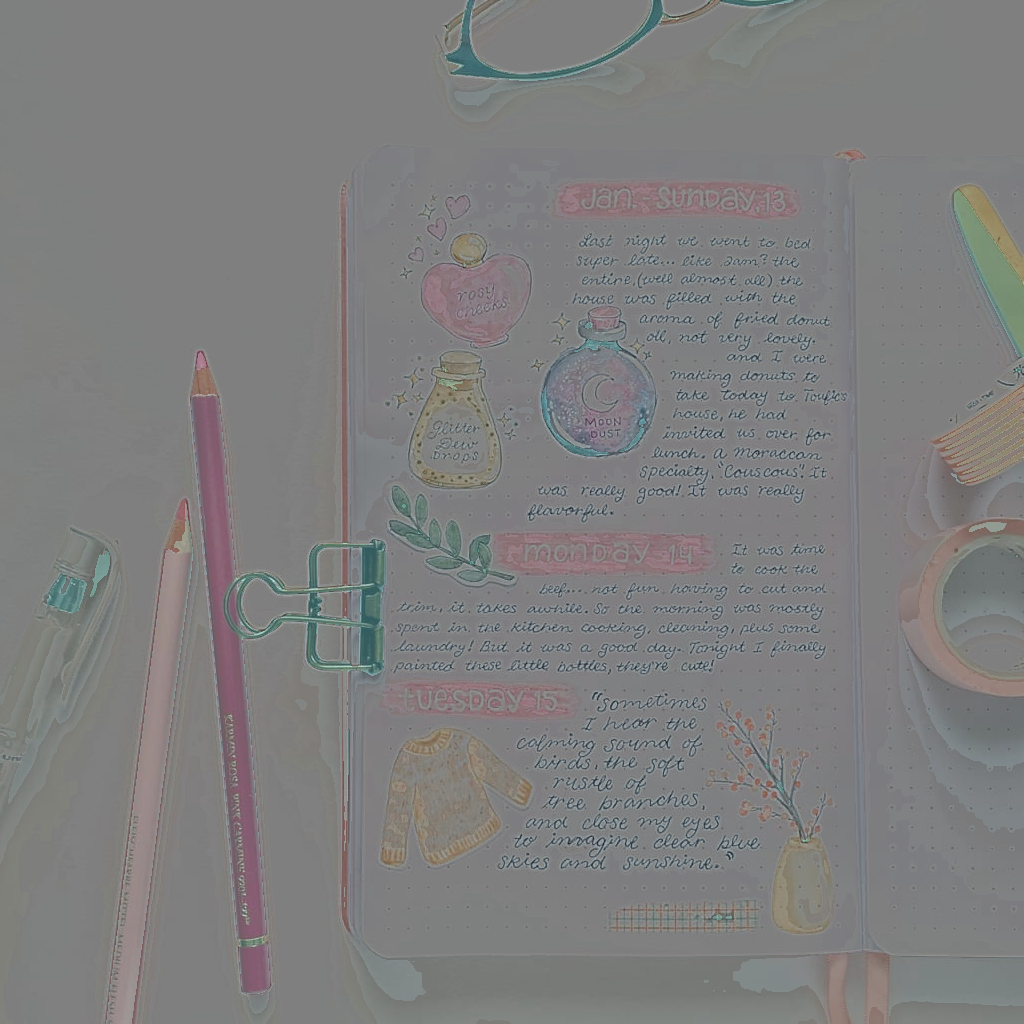 Jan. Sunday, 13
Last night we went to bed
super late... like 2am? the
entire, (well almost all) the
house was filled with the
aroma of fried donut
oil, not very lovely.
and I were
making donuts to
take today to Toufic's
house, he had
invited us over for
lunch. A Moroccan
specialty, "Couscous". It
was really good! It was really
flavorful.
rosy
cheeks
MOON
DUST
Glitter
Dew
Drops
monday 14
It was time
to cook the
beef... not fun having to cut and
trim, it takes awhile. So the morning was mostly
spent in the kitchen cooking, cleaning, plus some
laundry! But it was a good day. Tonight I finally
painted these little bottles, they're cute!
tuesday 15
"Sometimes
I hear the
calming sound of
birds, the soft
rustle of
tree branches,
and close my eyes
to imagine clear blue
skies and sunshine."